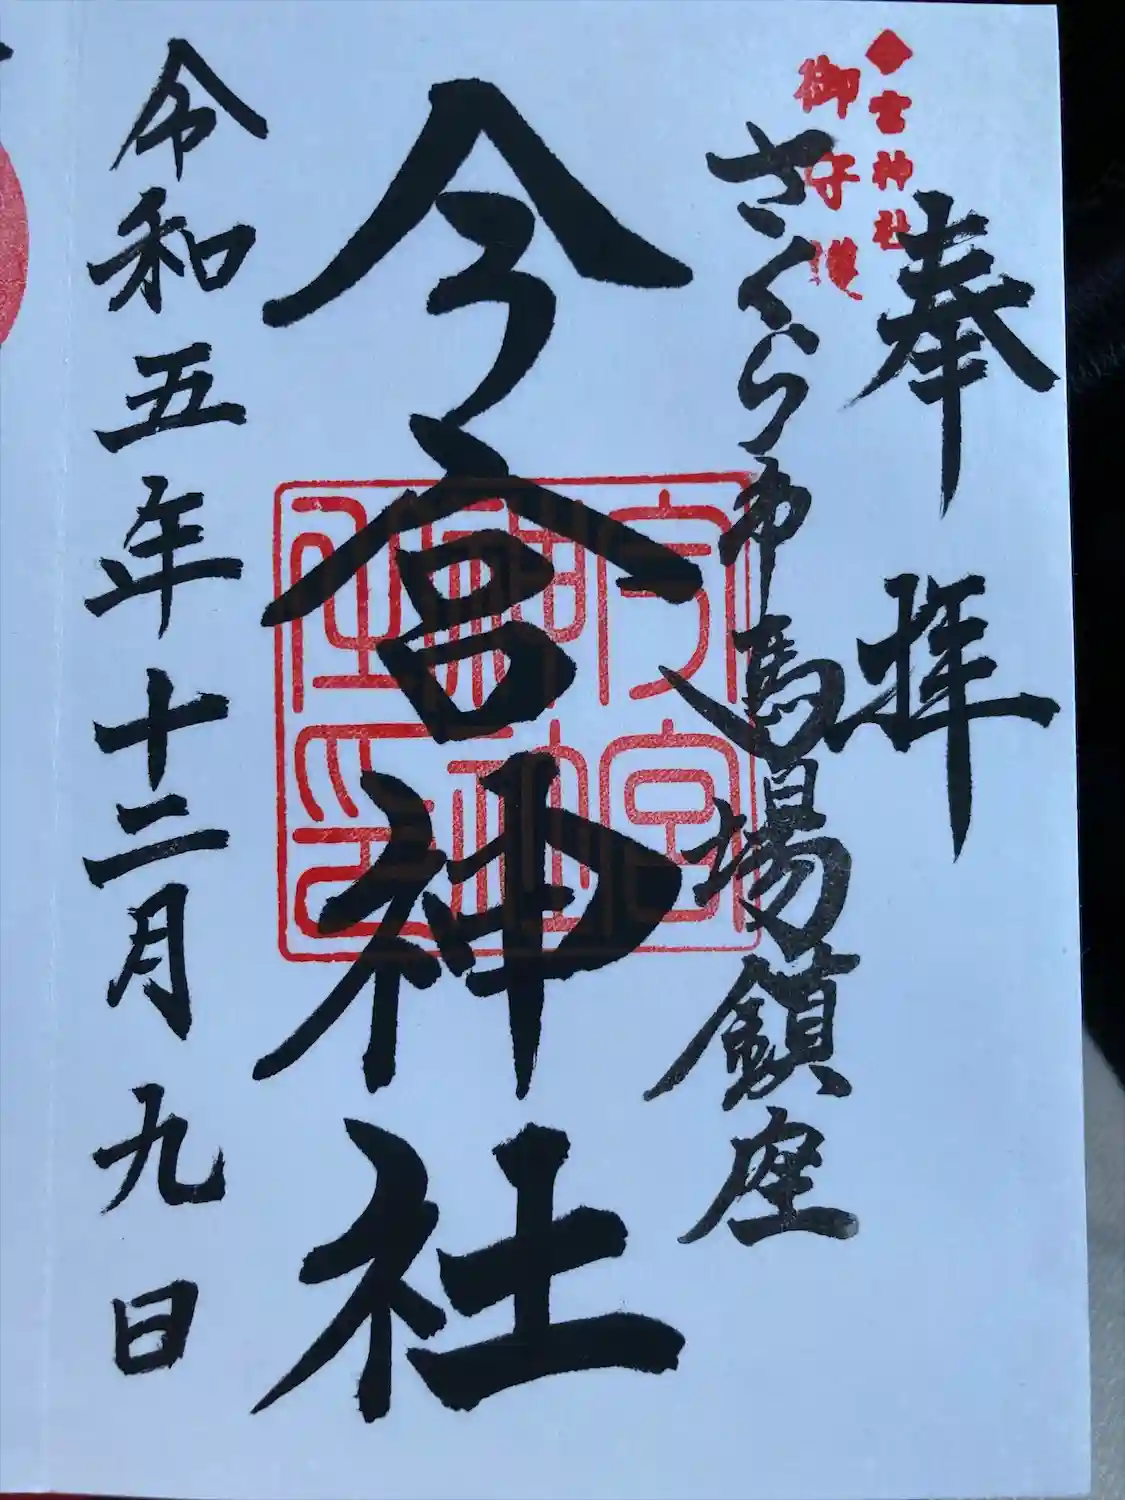 奉拝
今宮神社
御守護
さくら市馬場鎮座
今宮神社
今宮
神社
印
令和五年十二月九日